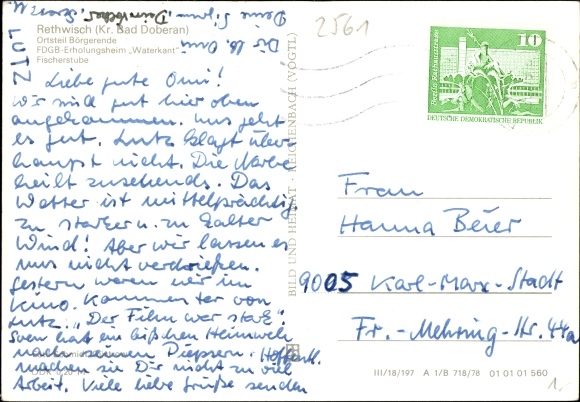 Deine Sigrun, Dein Volker, Sven
Dir l. Omi
LUTZ
Rethwisch (Kr. Bad Doberan)
Ortsteil Börgerende
FDGB-Erholungsheim „Waterkant“
Fischerstube
Liebe gute Omi!
Wir sind gut hier oben
angekommen. Uns geht
es gut. Lutz klagt über
haupt nicht. Die Narbe
heilt zusehends. Das
Wetter ist mittelprächtig
zu starker u. zu kalter
Wind! Aber wir lassen es
uns nicht verdrießen.
gestern waren wir im
Kino. Kommentar von
Lutz: „Der Film war stark“.
Sven hat ein bißchen Heimweh
nach seinen Piepsern. Hoffentl.
machen sie Dir nicht zu viel
Arbeit. Viele liebe Grüße senden
BILD UND HEIMAT REICHENBACH (VOGTL)
2561
10
DEUTSCHE DEMOKRATISCHE REPUBLIK
Frau
Hanna Beier
9005 Karl-Marx-Stadt
Fr.-Mehring-Str. 44a
III/18/197 A 1/B 718/78 01 01 01 560
1.-